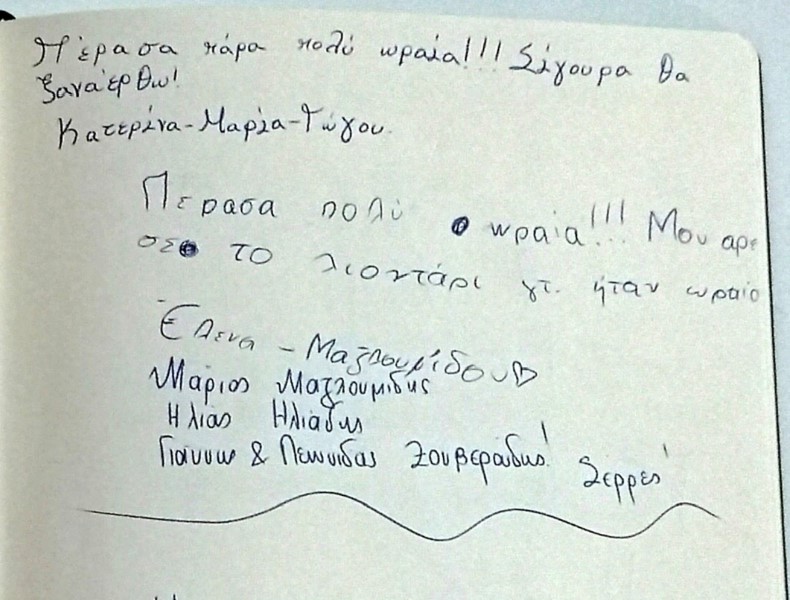 Πέρασα πάρα πολύ ωραία!!! Σίγουρα θα
ξαναέρθω!
Κατερίνα-Μαρία-Γώγου.
Περασα πολύ ωραία!!! Μου αρε
σε το λιοντάρι γτ. ήταν ωραίο
Έλενα - Μαζλουμίδου
Μάριος Μαζλουμιδης
Ηλίας Ηλιάδης
Γιάννης & Λεωνιδας Ζουβεράδης!
Σέρρες!